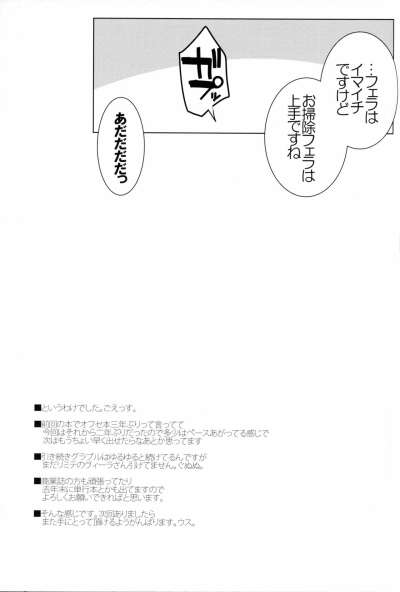 …フェラは
イマイチ
ですけど
お掃除フェラは
上手ですね
デ
あだだだだっ
■というわけでした。ごえっす。
■前回の本でオフセ本三年ぶりって言ってて
今回はそれから二年ぶりだったので多少はペースあがってる感じで
次はもうちょい早く出せたらなあとか思ってます
■引き続きグラブルはゆるゆると続けてるんですが
まだリミテのヴィーラさん引けてません。ぐぬぬ。
■商業誌の方も頑張ってたり
去年末に単行本とかも出てますので
よろしくお願いできればと思います。
■そんな感じです。次回ありましたら
また手にとって頂けるようがんばります。ウス。